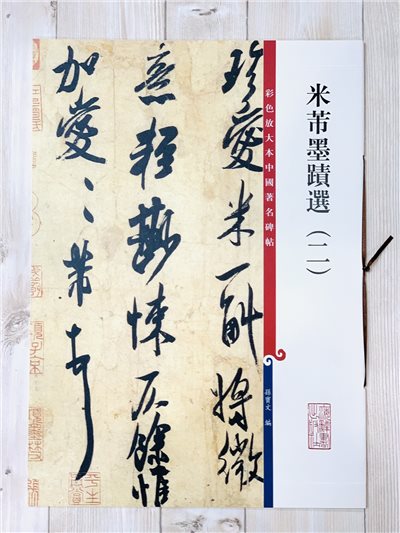 米芾墨蹟選（二）
彩色放大本中國著名碑帖
孫寶文 編
珍愛米一斛將微
意輕尠悚仄餘惟
加愛〻芾頓首